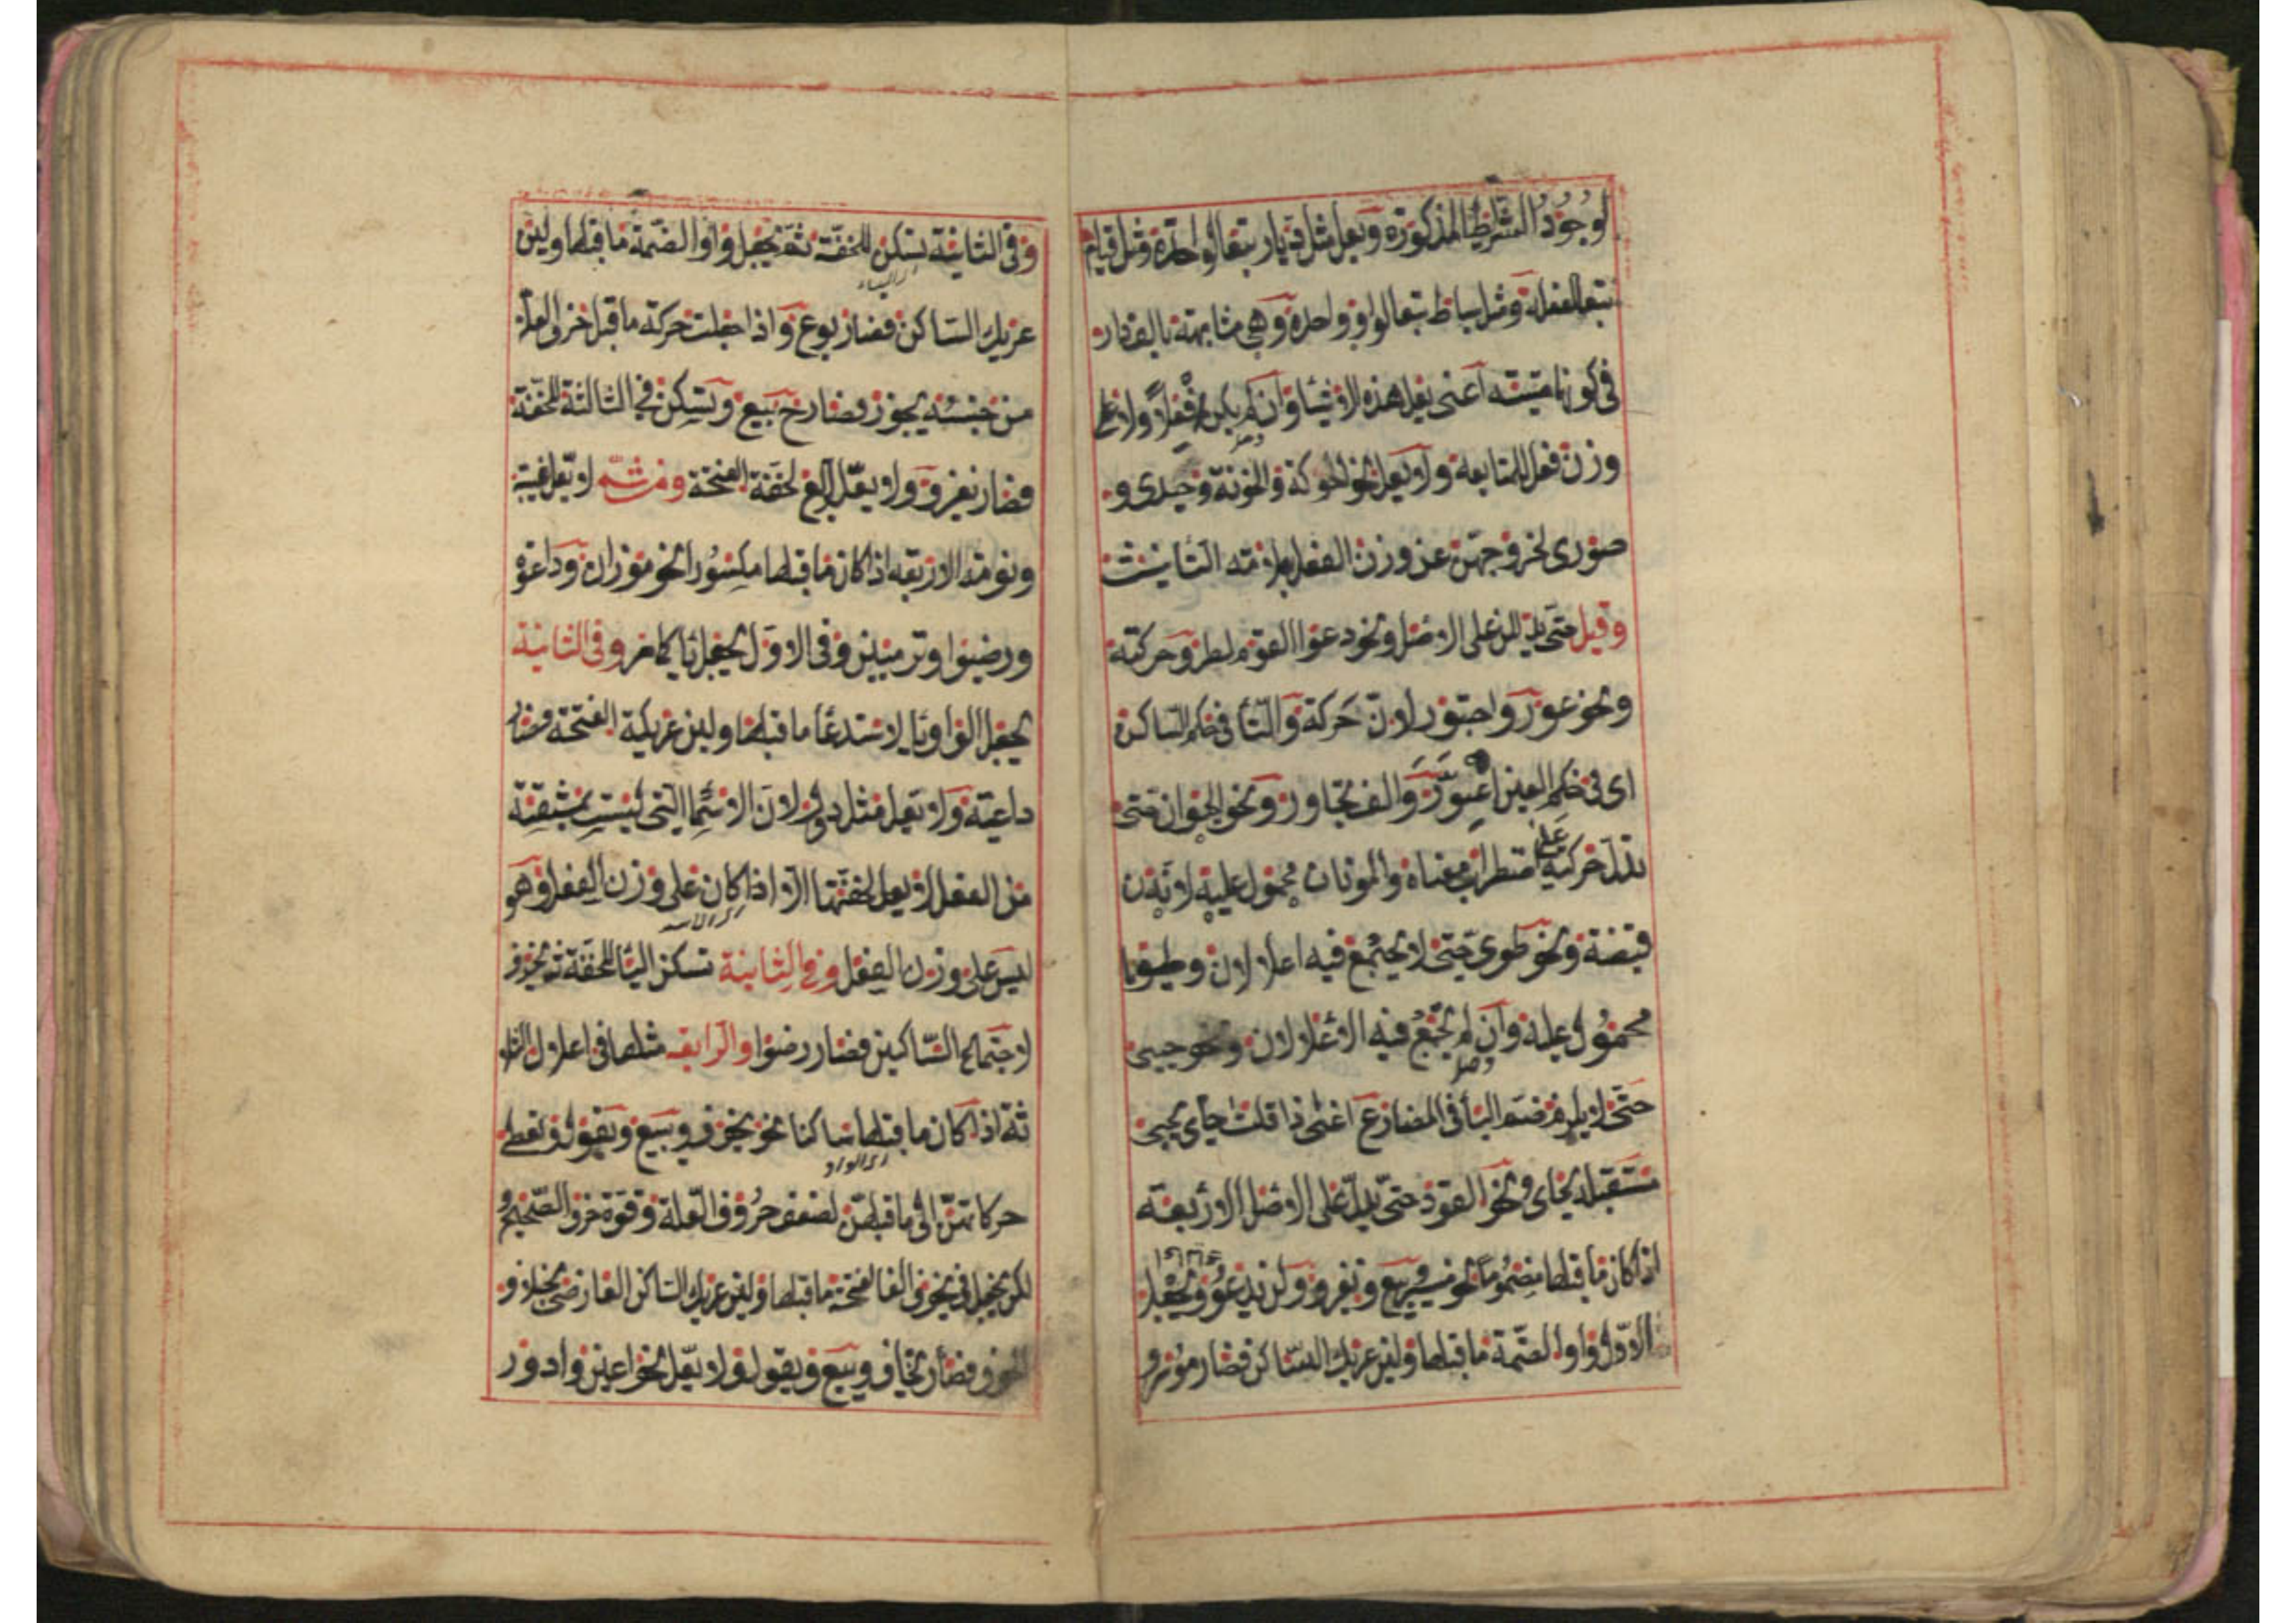 لوجود الشرائط المذكورة ويعل مثل ديار تبعا لواحدة ومثل قيام
تبعا لفعله ومثل سياط تبعا لواو واحدة وهي مشابهة بالف دار
في كونها ميتة اعنى يعل هذه الاشياء وان لم يكن فعلا ولا على
وزن فعل للمتابعة ولا يعل نحو الحوكة والخونة وحيدى و
صورى لخروجهن عن وزن الفعل بعلامة التأنيث
وقيل حتى يدللن على الاصل ونحو دعوا القوم لطرو حركته
ونحو عور واجتور لان حركة والتا فى حكم الساكن
اى فى حكم العين اعور والف تجاور ونحو الحيوان حتى
يدل حركته على اضطراب معناه والموتان محمول عليه لانه
نقيضه ونحو طوى حتى لا يجتمع فيه اعلالان وطويا
محمول عليه وان لم يجتمع فيه الاعلالان ونحو حيى
حتى لا يلزم ضم اليا فى المضارع اعنى اذا قلت حاى يجيئ
مستقبله يحاى ونحو القود حتى يدل على الاصل الاربعة
اذا كان ما قبلها مضموما نحو ميسر وبيع ويغزو ولن يدعو ويجعل
الاول واوا لضمة ما قبلها ولين عريكة الساكن فصار موسر و
وفى الثانية تسكن للخفة ثم يجعل واوا لضمة ما قبلها ولين
اى الياء
عريكة الساكن فصار بوع واذا جعلت حركة ما قبل حرف العلة
من جنسه يجوز فصار ح بيع وتسكن فى الثالثة للخفة
فصار يغزو ولا يعل الرابع لخفة الفتحة ومن ثم لا يعل غيبة
ونومة الاربعة اذا كان ما قبلها مكسورا نحو موزان وداعوة
ورضيوا وترميين وفى الاول يجعل ياء كما مر وفى الثانية
يجعل الواو يا لاستدعا ما قبلها ولين عريكة الفتحة فصار
داعية ولا يعل مثل دول لان الاسماء التى ليست بمشتقة
من الفعل لا يعل لخفتها الا اذا كان على وزن الفعل وهو
ليس على وزن الفعل وفى الثانية تسكن اليا للخفة ثم يحذف
لاجتماع الساكنين فصار رضوا والرابعة مثلها فى اعلال الثلا
ثة اذا كان ما قبلها ساكنا نحو يخوف ويبيع ويقول فتعطى
اى الواو
حركاتهن الى ما قبلهن لضعف حروف العلة وقوة حرف الصحيح و
لكن يجعل فى يخوف الفا لفتحة ما قبلها ولين عريكة الساكن العارضى بخلاف
الخوف فصار يخاف ويبيع ويقول ولا يعل نحو اعين وادور